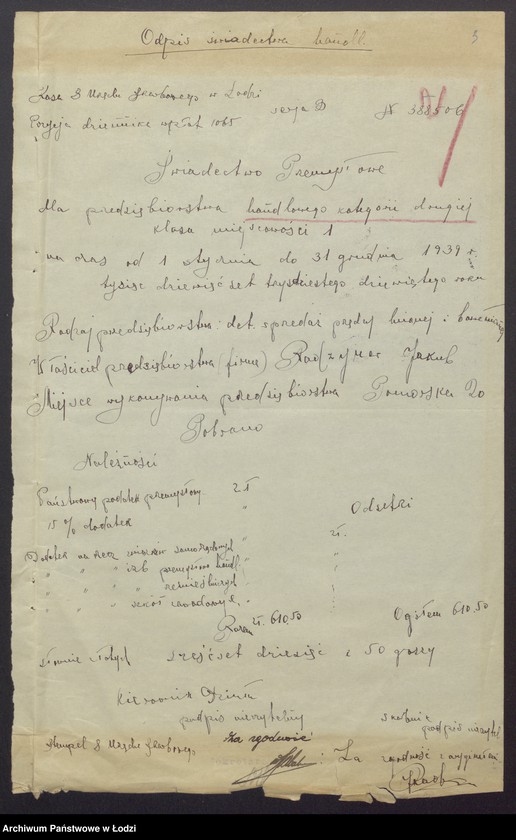 Odpis świadectwa handl.
5
Kasa 8 Urzędu Skarbowego w Łodzi
Pozycja dziennika wpłat 1065 serja D № 388506
Świadectwo Przemysłowe
dla przedsiębiorstwa handlowego kategorii drugiej
klasa miejscowości 1
na czas od 1 stycznia do 31 grudnia 1939 r.
tysiąc dziewięćset trzydziestego dziewiątego roku
Rodzaj przedsiębiorstwa: det. sprzedaż przędzy lnianej i bawełnianej
Właściciel przedsiębiorstwa (firma) Radzyner Jakub
Miejsce wykonywania przedsiębiorstwa Pomorska 20
Pobrano
Należności
Państwowy podatek przemysłowy zł
15% dodatek "
Odsetki
Dodatek na rzecz związków samorządowych " zł.
" " " izb przemysłowo handl. " "
" " " rzemieślniczych " "
" " " szkół zawodowych " "
Razem zł. 610.50 Ogółem 610.50
słownie złotych sześćset dziesięć i 50 groszy
Kierownik Działu
podpis nieczytelny
podpis nieczytel.
Za zgodność
Stempel 8 Urzędu Skarbowego
Za zgodność z oryginałem
Archiwum Państwowe w Łodzi